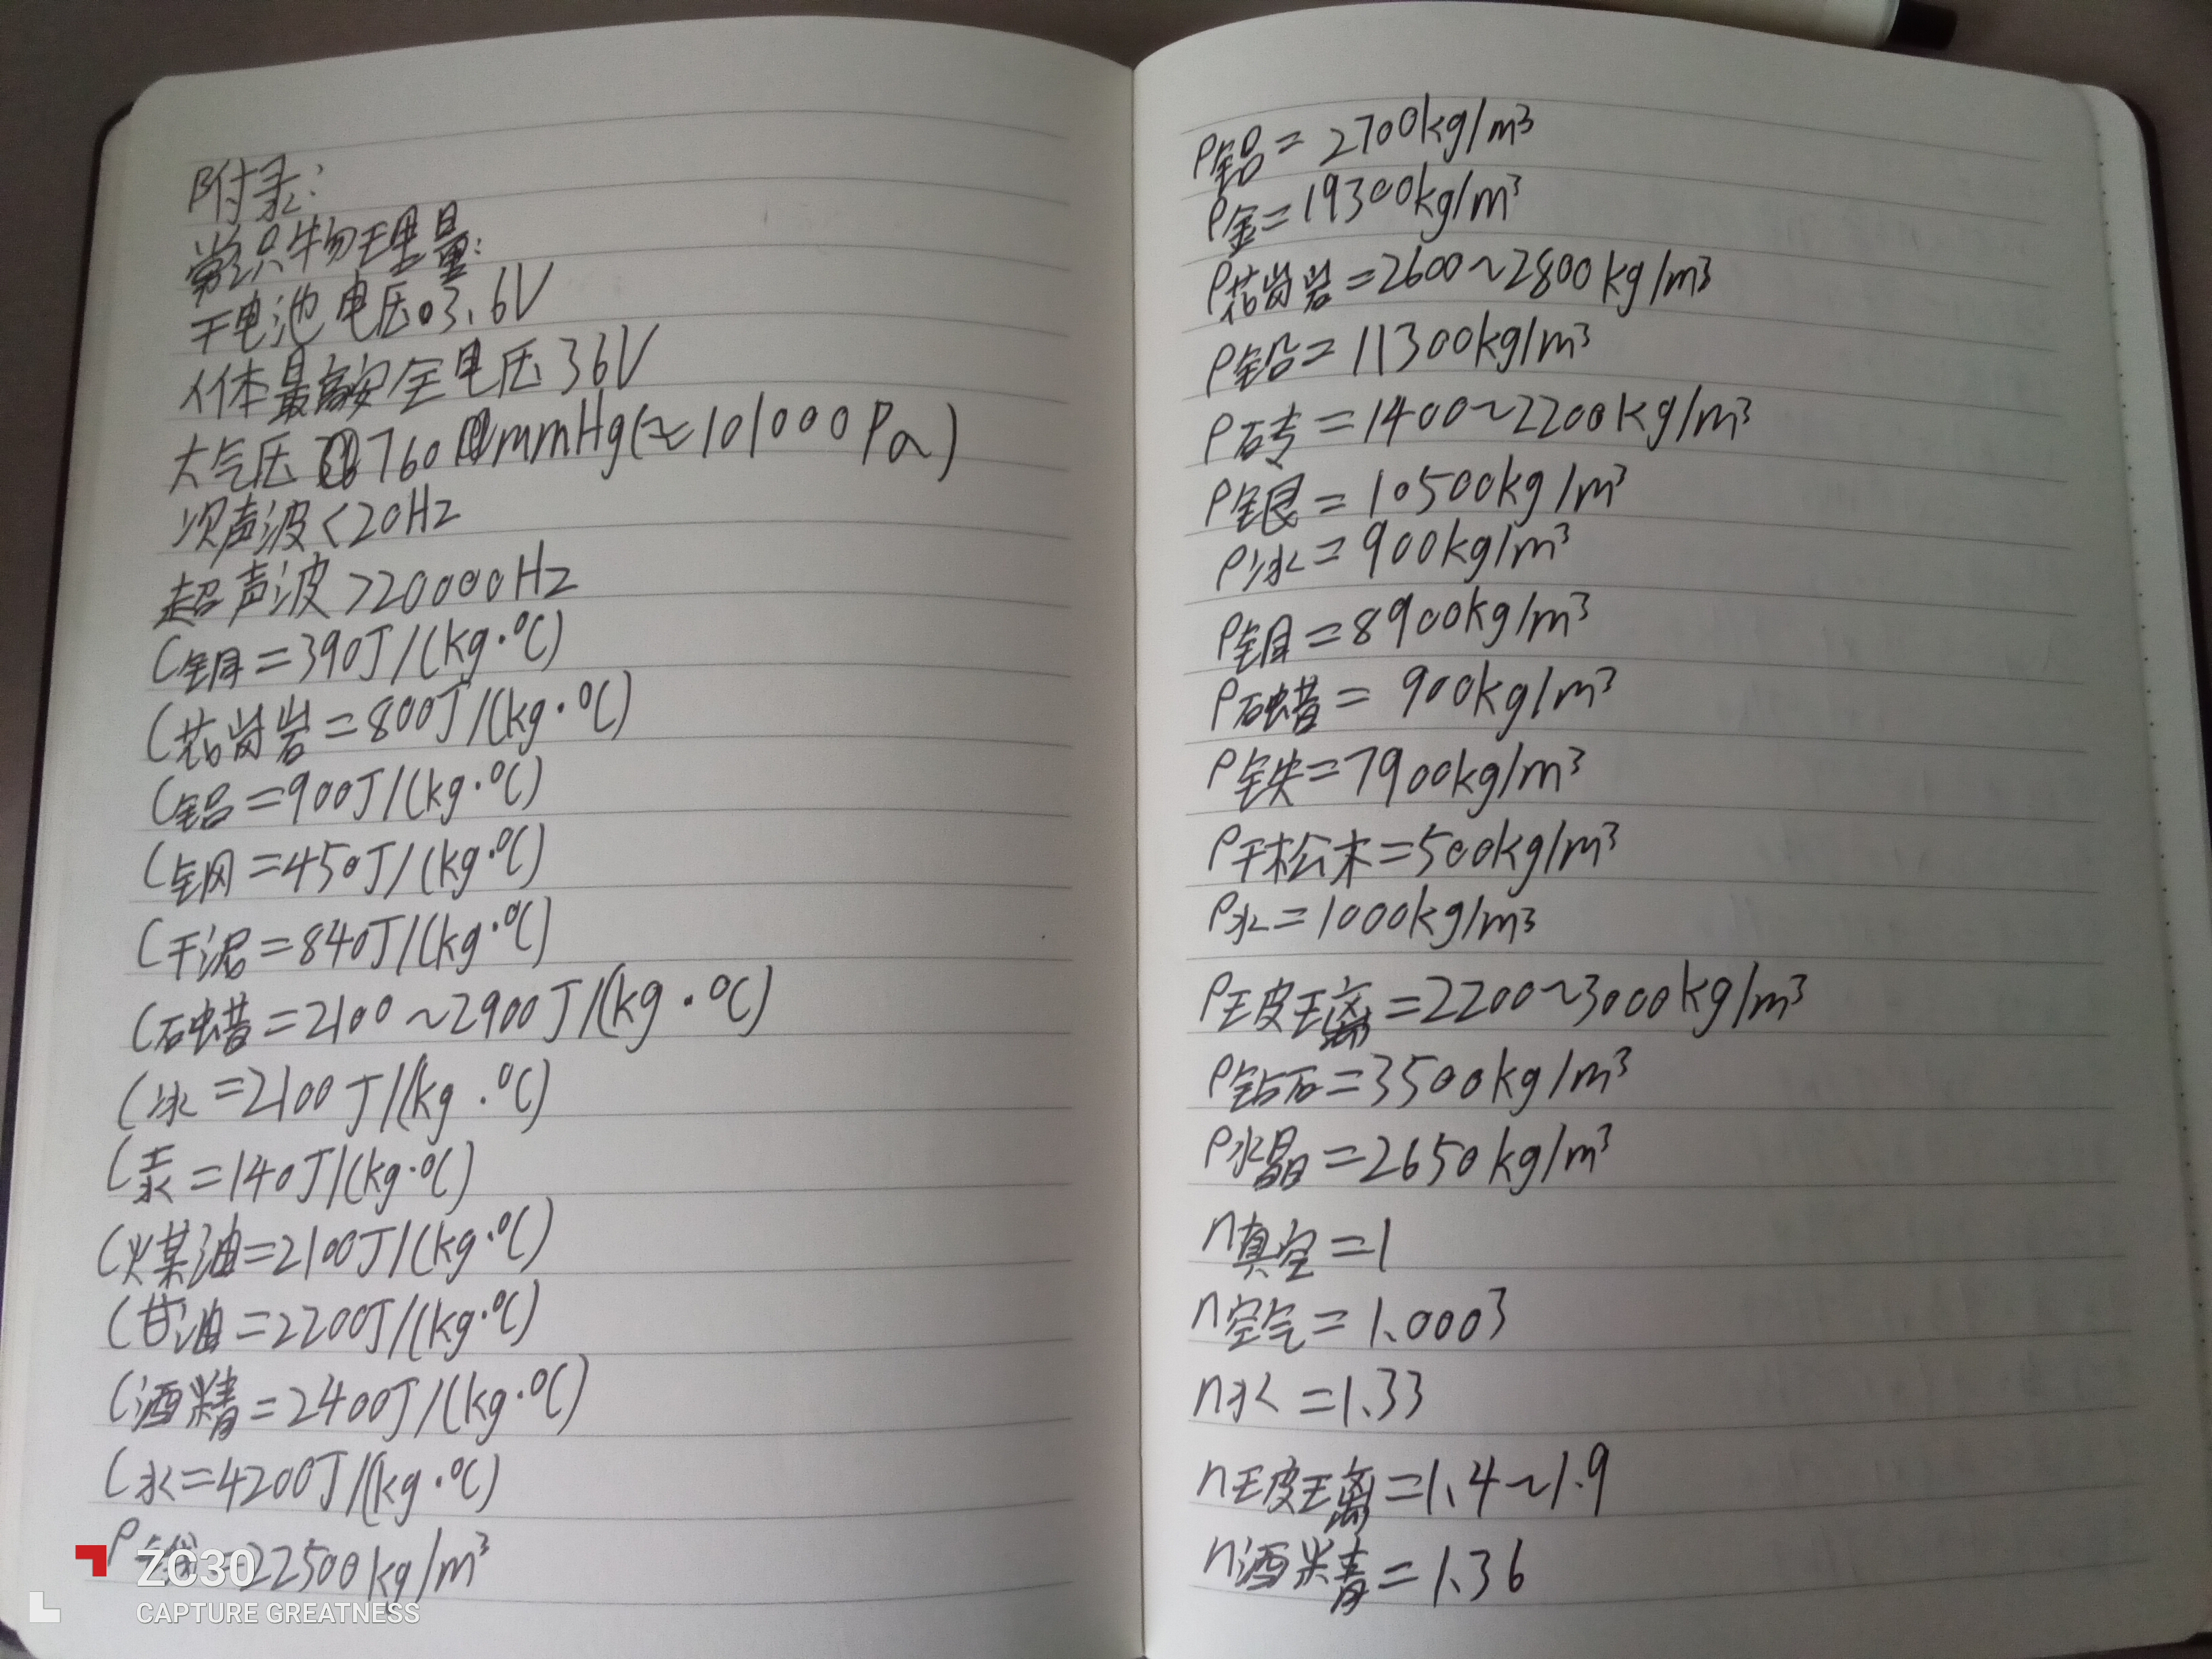 附录:
常识物理量:
干电池电压03.6V
人体最高安全电压36V
大气压760mmHg(≈101000Pa)
次声波<20Hz
超声波>20000Hz
C铜=390J/(kg·℃)
C花岗岩=800J/(kg·℃)
C铝=900J/(kg·℃)
C钢=450J/(kg·℃)
C干泥=840J/(kg·℃)
C石蜡=2100~2900J/(kg·℃)
C冰=2100J/(kg·℃)
C汞=140J/(kg·℃)
C煤油=2100J/(kg·℃)
C甘油=2200J/(kg·℃)
C酒精=2400J/(kg·℃)
C水=4200J/(kg·℃)
ρ=22500kg/m³
ρ铝=2700kg/m³
ρ金=19300kg/m³
ρ花岗岩=2600~2800kg/m³
ρ铅=11300kg/m³
ρ砖=1400~2200kg/m³
ρ银=10500kg/m³
ρ冰=900kg/m³
ρ铜=8900kg/m³
ρ石蜡=900kg/m³
ρ铁=7900kg/m³
ρ干松木=500kg/m³
ρ水=1000kg/m³
ρ玻璃=2200~3000kg/m³
ρ钻石=3500kg/m³
ρ水晶=2650kg/m³
n真空=1
n空气=1.0003
n水=1.33
n玻璃=1.4~1.9
n酒精=1.36
ZC30
CAPTURE GREATNESS